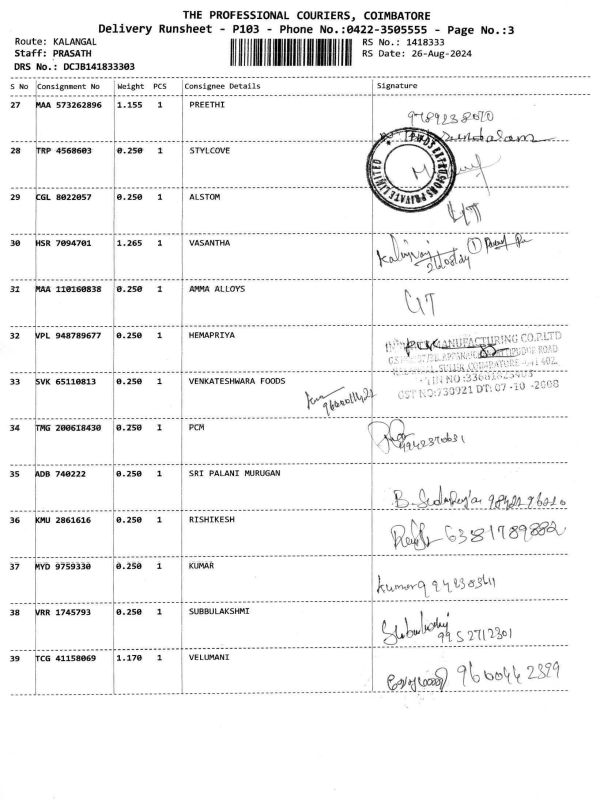 THE PROFESSIONAL COURIERS, COIMBATORE
Delivery Runsheet - P103 - Phone No.:0422-3505555 - Page No.:3
Route: KALANGAL
RS No.: 1418333
Staff: PRASATH
RS Date: 26-Aug-2024
DRS No.: DCJB141833303
S No Consignment No Weight PCS Consignee Details Signature
27 MAA 573262896 1.155 1 PREETHI
28 TRP 4568603 0.250 1 STYLCOVE
29 CGL 8022057 0.250 1 ALSTOM
PRIVATE LIMITED
30 HSR 7094701 1.265 1 VASANTHA
31 MAA 110160838 0.250 1 AMMA ALLOYS
32 VPL 948789677 0.250 1 HEMAPRIYA
MANUFACTURING CO.P.LTD
ROAD
33 SVK 65110813 0.250 1 VENKATESHWARA FOODS
CST NO:730921 DT: 07-10-2008
34 TMG 200618430 0.250 1 PCM
35 ADB 740222 0.250 1 SRI PALANI MURUGAN
36 KMU 2861616 0.250 1 RISHIKESH
6381789882
37 MYD 9759330 0.250 1 KUMAR
kumar
38 VRR 1745793 0.250 1 SUBBULAKSHMI
9952712301
39 TCG 41158069 1.170 1 VELUMANI
9600442399